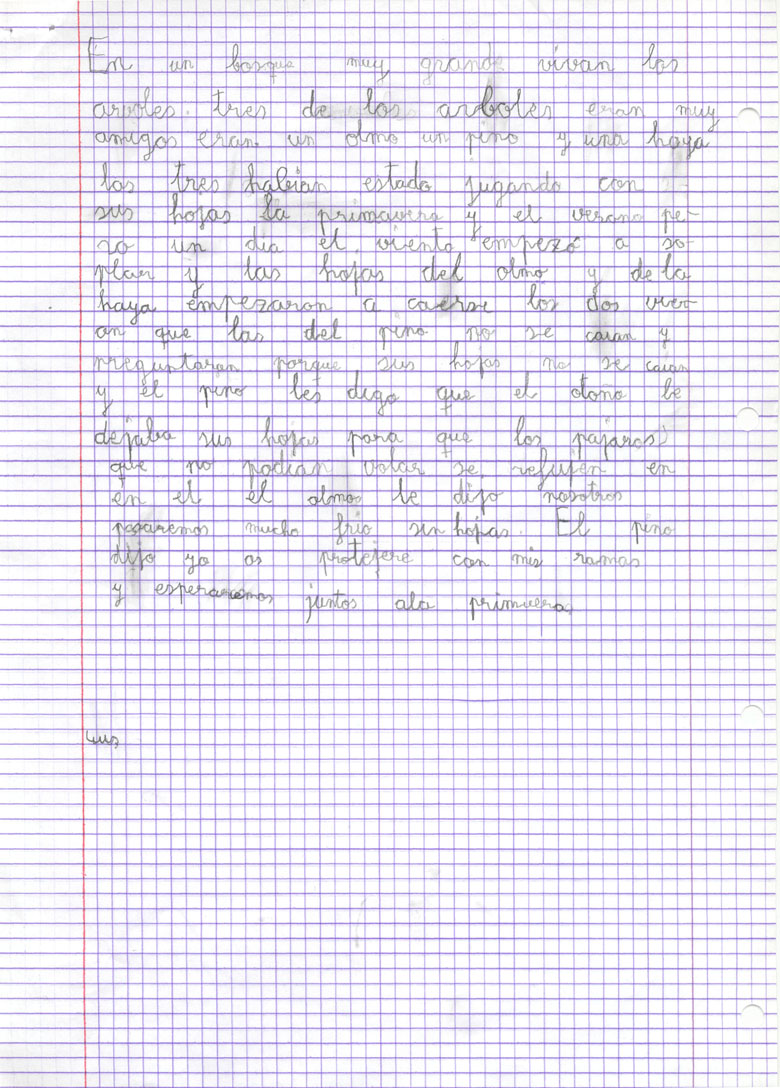 En un bosque muy grande vivan los
arboles. tres de los arboles eran muy
amigos eran. un olmo un pino y una haya
los tres habian estado jugando con
sus hojas la primavera y el verano pe-
ro un dia el viento empezó a so-
plar y las hojas del olmo y de la
haya empezaron a caerse los dos vier-
on que las del pino no se caian y
preguntaran porque sus hojas no se caian
y el pino les digo que el otoño le
dejaba sus hojas para que los pajaros
que no podian volar se refujen en
en el el olmos le dijo nosotros
pasaremos mucho frio sin hojas. El pino
dijo yo os protejere con mis ramas
y esperaremos juntos ala primuera